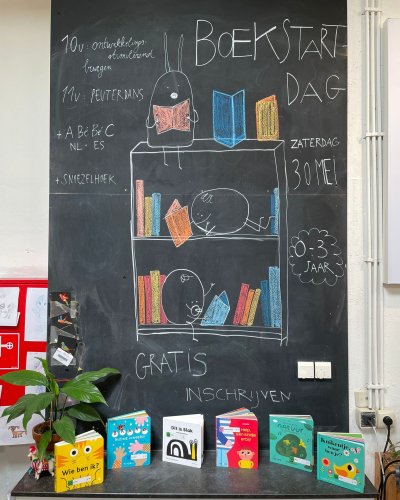 BOEKSTART
DAG
10u: ontwikkelings-
stimulerend
bewegen
11u: PEUTERDANS
+ A BéBé C
NL - ES
+ SNOEZELHOEK
ZATERDAG
30 MEI
0-3
JAAR
GRATIS
INSCHRIJVEN
Wie ben ik?
Dit is Blub
natuur